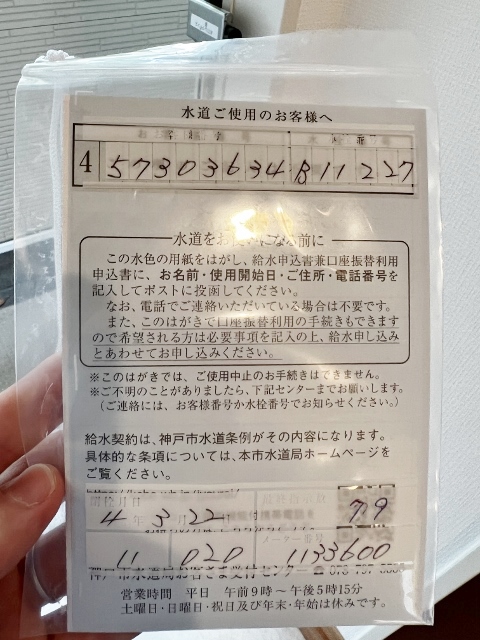 水道ご使用のお客様へ
4 57303634 B11227
水道をお使いになる前に
この水色の用紙をはがし、給水申込書兼口座振替利用
申込書に、お名前・使用開始日・ご住所・電話番号を
記入してポストに投函してください。
なお、電話でご連絡いただいている場合は不要です。
また、このはがきで口座振替利用の手続きもできます
ので希望される方は必要事項を記入の上、給水申し込み
とあわせてお申し込みください。
※このはがきでは、ご使用中止のお手続きはできません。
※ご不明のことがありましたら、下記センターまでお願いします。
(ご連絡には、お客様番号か水栓番号でお知らせください。)
給水契約は、神戸市水道条例がその内容になります。
具体的な条項については、本市水道局ホームページを
ご覧ください。
4 年 3 月 22 日 79
メーター番号
11 020 1133600
神戸市水道局お客さま受付センター
営業時間 平日 午前9時～午後5時15分
土曜日・日曜日・祝日及び年末・年始は休みです。